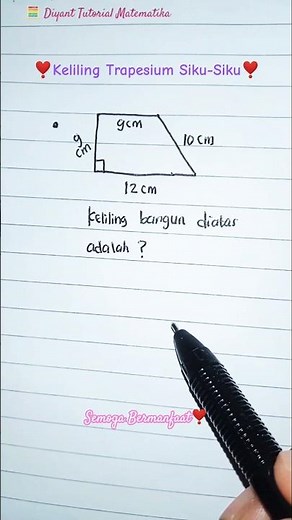 🧮 Diyant Tutorial Matematika
❣️Keliling Trapesium Siku-Siku❣️
9cm
9 cm
10 cm
12 cm
Keliling bangun diatas
adalah ?
Semoga Bermanfaat❣️